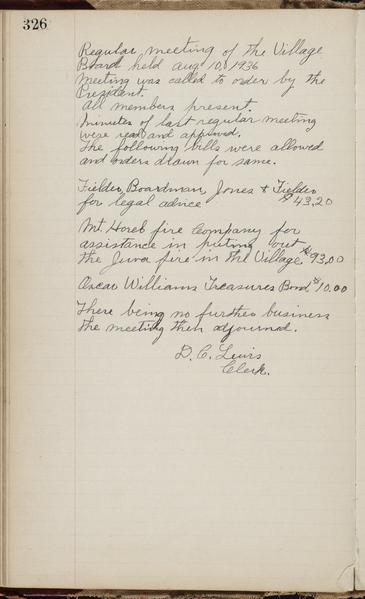 326
Regular meeting of the Village
Board held Aug 10, 1936
Meeting was called to order by the
President.
All members present.
Minutes of last regular meeting
were read and approved.
The following bills were allowed
and orders drawn for same.
Fielder, Boardman, Jones & Fielder
for legal advice $43,20
Mt. Horeb fire Company for
assistance in puting out
the June fire in the Village. $93,00
Oscar Williams Treasures Bond $10.00
There being no further business
the meeting then adjourned.
D. C. Lewis
Clerk.